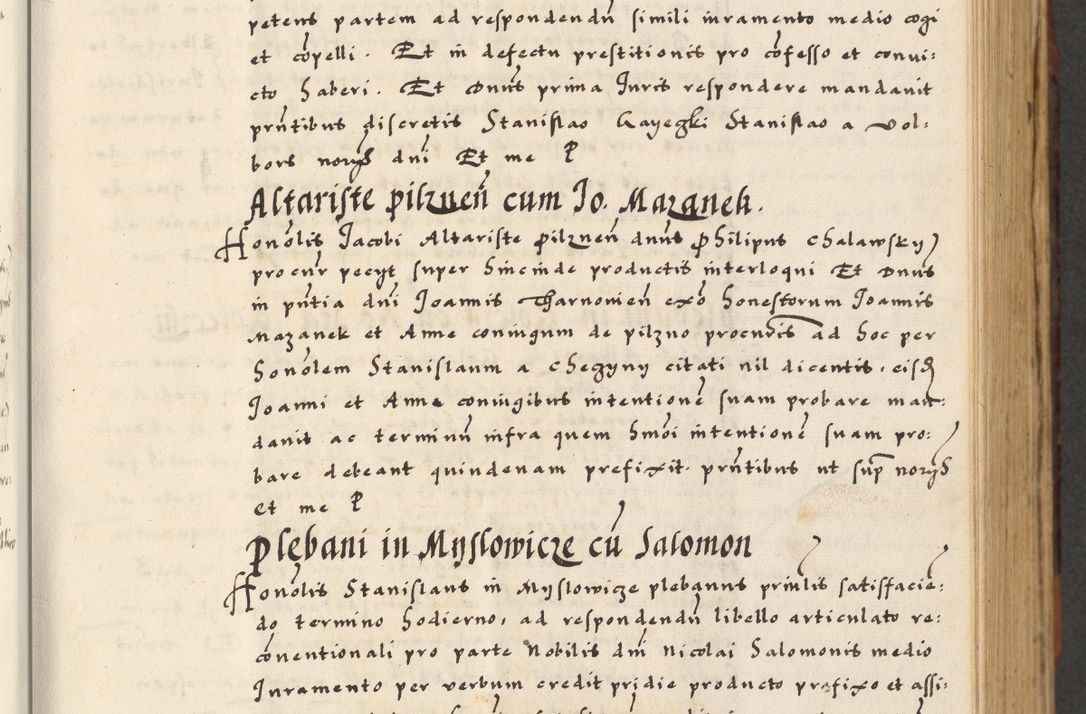 petens partem ad respondendū simili iuramento medio cogi
et cōpelli. Et in defectu prestitionis pro cōfesso et convi:
cto haberi. Et Dnūs prima Juris respondere mandavit
prn̄tibus discretis Stanislao Gayegki Stanislao a Vol:
bors nor͞ys dnī Et me P
Altariste pilznen̄ cum Jo. Mazanek.
Honōlis Jacobi Altariste Pilznen̄ dnūs Philipus Chalawsky
procur̄ pecyt super hincinde productis interloqui Et Dnūs
in pn̄tia dnī Joannis Tharnovien̄ exō honestorum Joannis
Mazanek et Anne coniugum de pilzno procur̄is ad hoc per
honōlem Stanislaum a Chegyny citati nil dicentis, eisd̄
Joanni et Anne coniugibus intentionē suam probare man:
davit ac terminū infra quem hmōi intentionē suam pro:
bare debeant quindenam prefixit. prn̄tibus ut sup̄ nor͞ys
et me P
Plebani in Myslowicze cū Salomon
Honōlis Stanislaus in Myslowicze plebanus prin̄lis satisfacie:
do termino hodierno, ad respondendū libello articulato re:
cōventionali pro parte Nobilis dnī Nicolai Salomonis medio
Juramento per verbum credit pridie producto prefixo et assi: